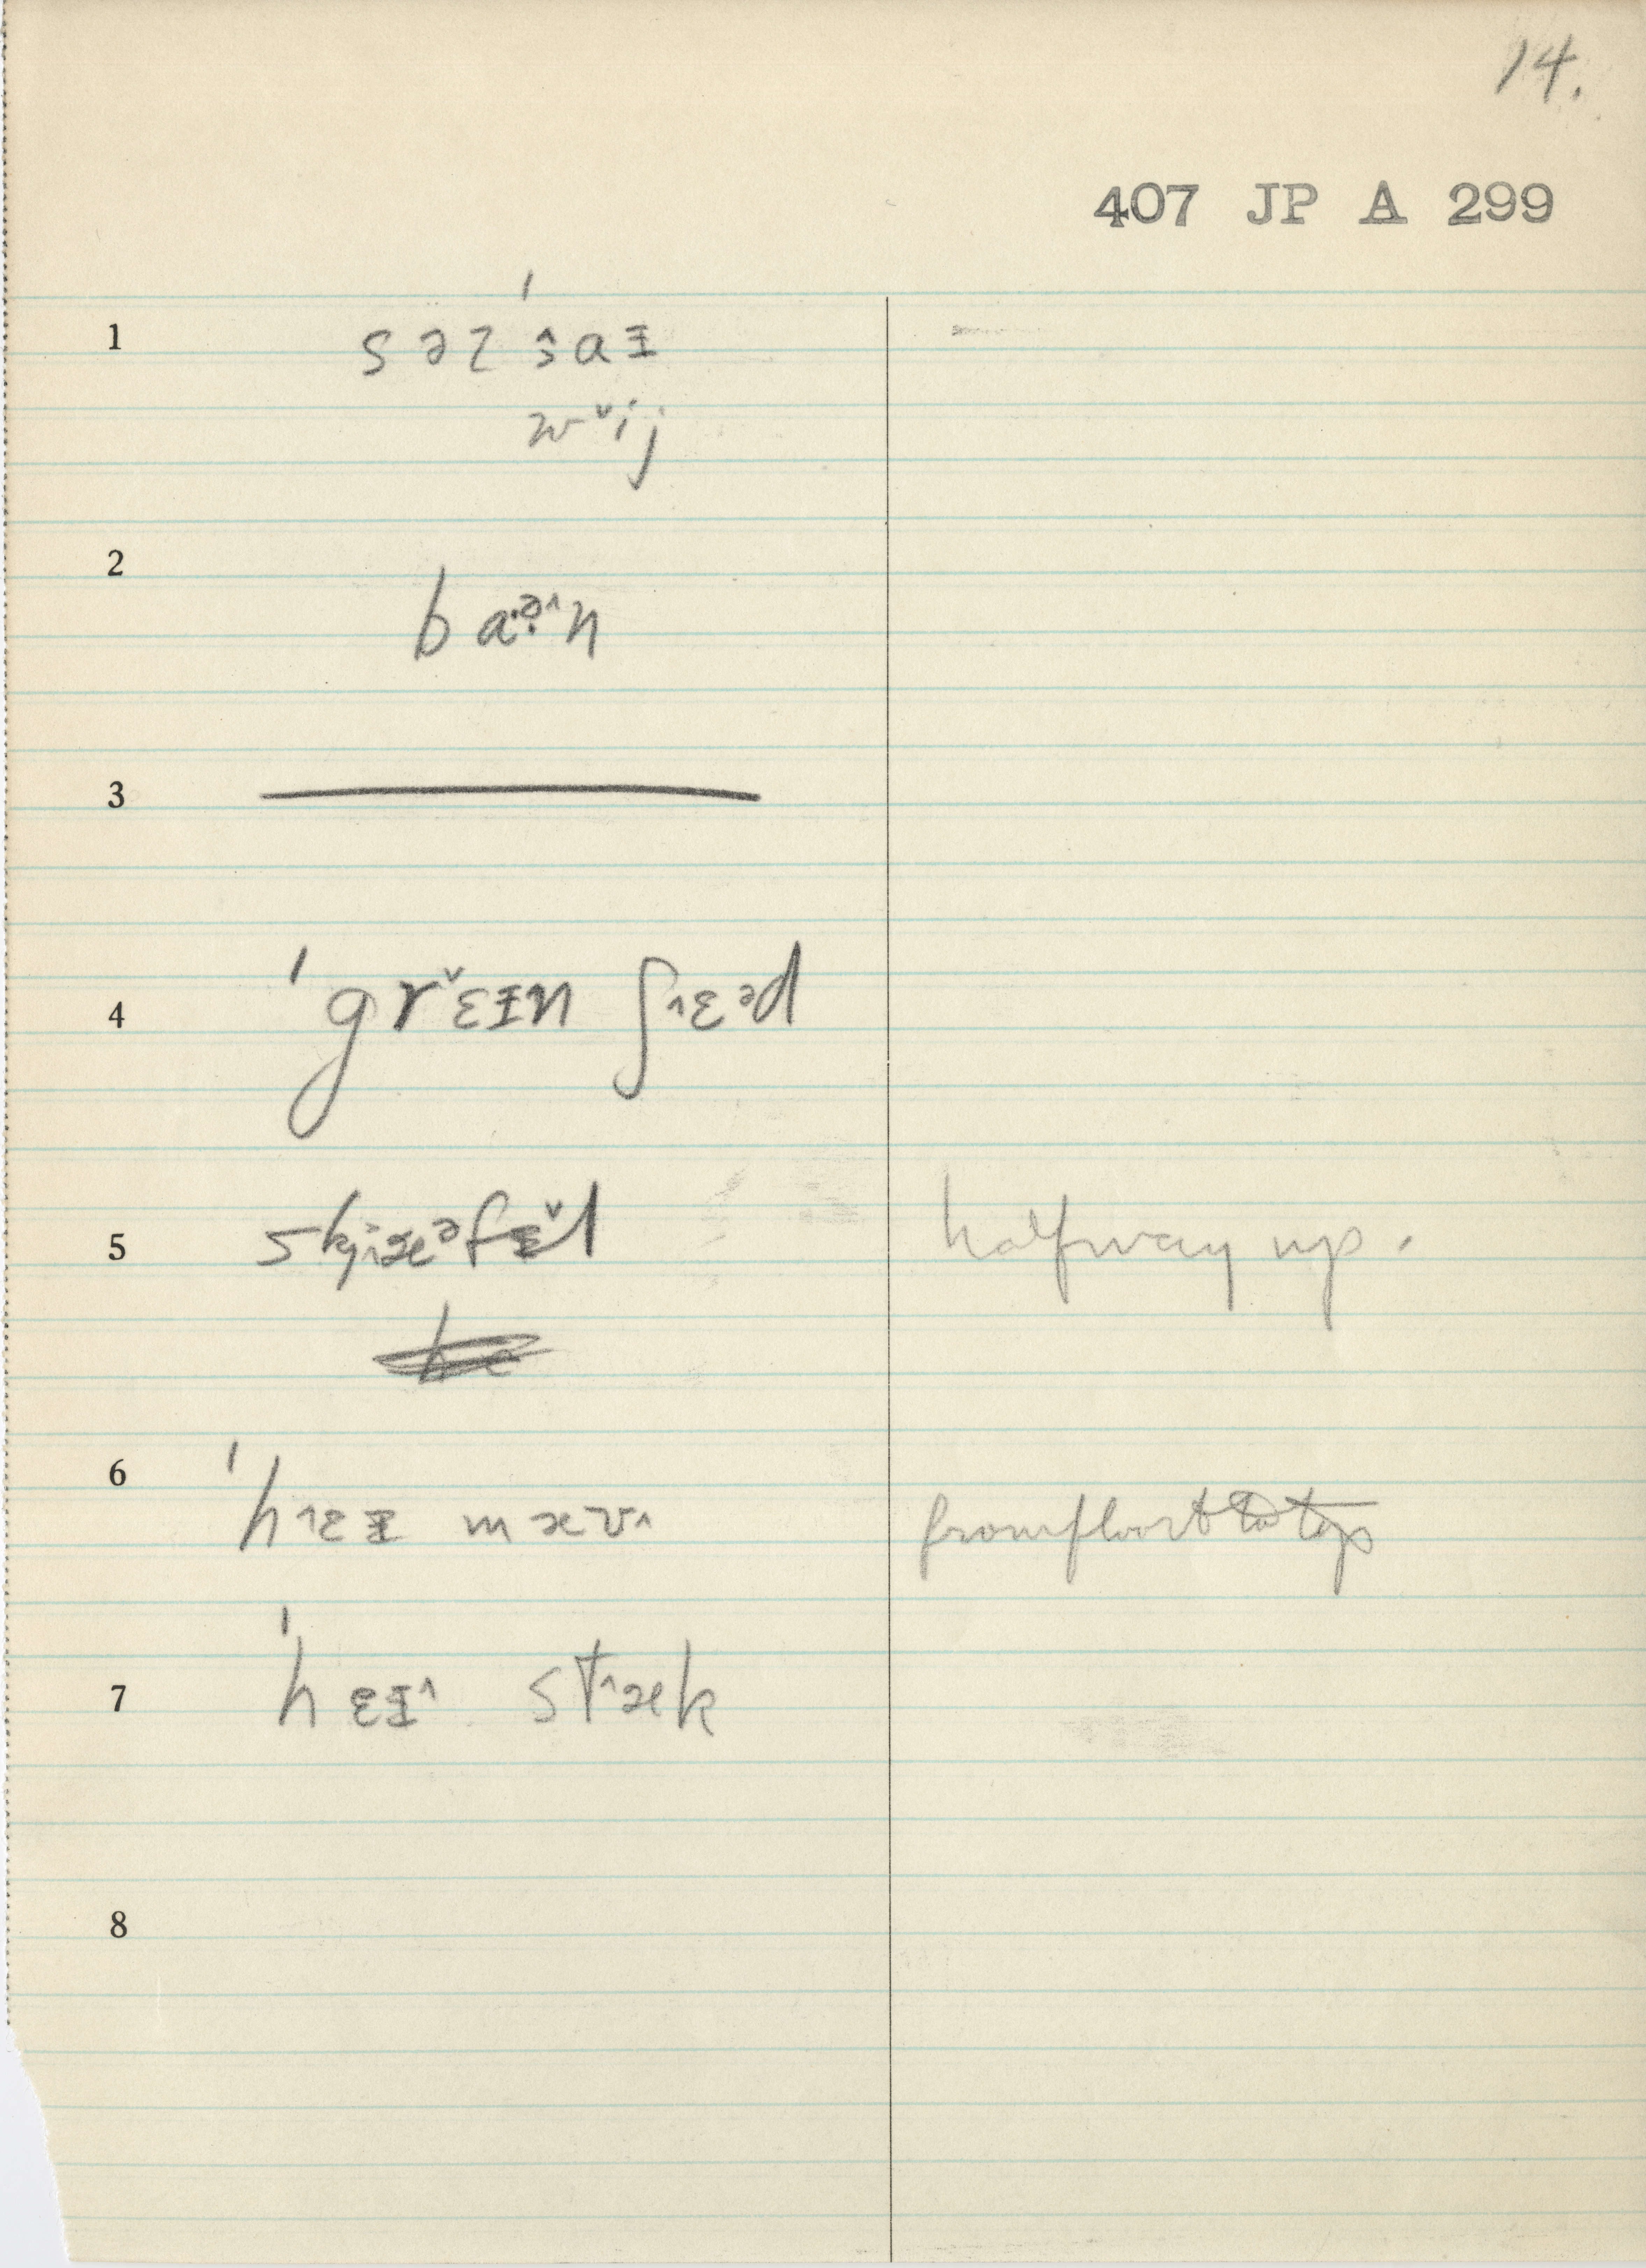 14.
407 JP A 299
1 sə ɀ ˈs̭aɪ
w ̌ij
2 baə̣^n
3
4 ˈgr ̌ɛɪn ʃ^ɛᵊd
5 skjæᵊfɪ ̌l halfway up.
6 ˈh^ɛɪ mæʊ^ from floor to top
7 ˈhɛɪ^ st^æk
8